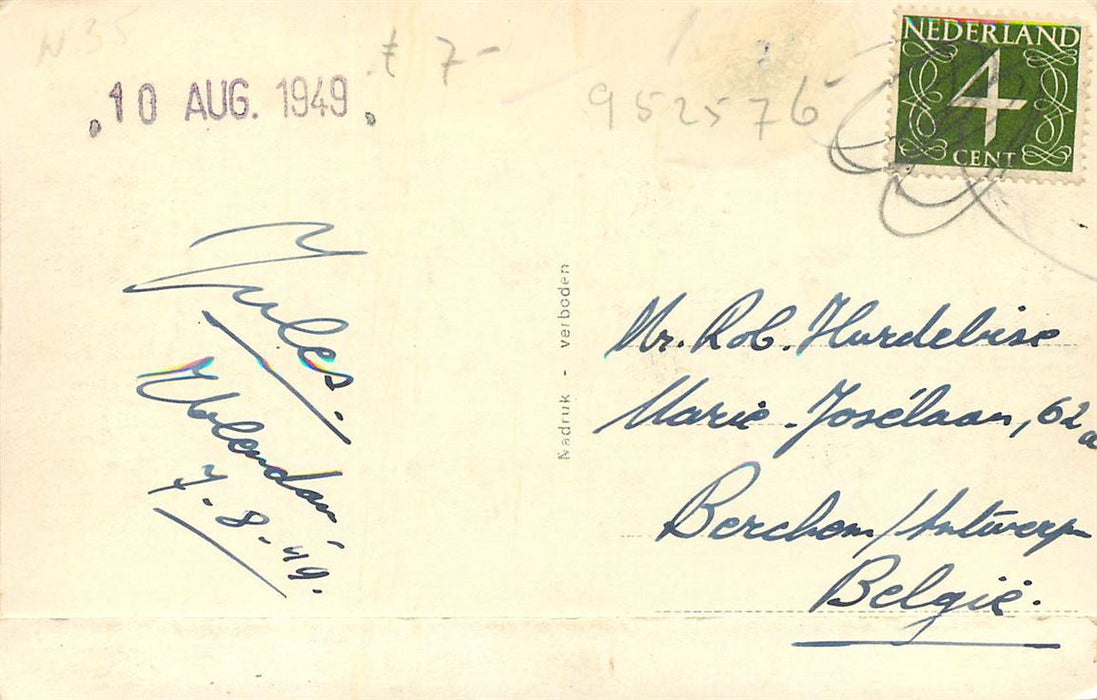 N. 35
10 AUG. 1949
7-
952576
NEDERLAND
4
CENT
Jules.
Volendam
7-8-49.
Nadruk - verboden
Mr. Rob. Hurdebise
Marie-Josélaan, 62a
Berchem/Antwerpen
België.